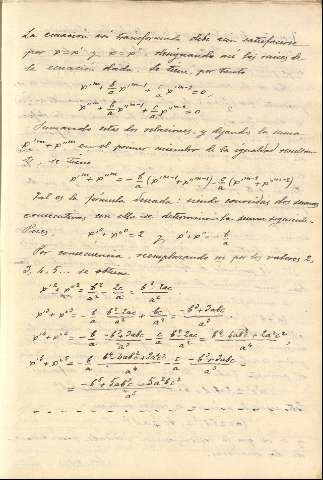 La ecuación así transformada debe aún satisfacerse
por x'=x' y x=x'' designando así las raíces de
la ecuación dada: se tiene, por tanto
x'^m + b/a x'^(m-1) + c/a x'^(m-2) = 0,
x''^m + b/a x''^(m-1) + c/a x''^(m-2) = 0,
Sumando estas dos relaciones, y dejando la suma
x'^m + x''^m en el primer miembro de la igualdad
se tiene
x'^m + x''^m = - b/a (x'^(m-1) + x''^(m-1)) - c/a (x'^(m-2) + x''^(m-2)).
Tal es la fórmula buscada: siendo conocidas dos sumas
consecutivas, con ella se determina la suma siguiente.
Pues x'^0 + x''^0 = 2 y x' + x'' = - b/a
Por consecuencia, reemplazando m por los valores 2,
3, 4, 5... se obtiene
x'^2 + x''^2 = b^2/a^2 - 2c/a = (b^2 - 2ac)/a^2
x'^3 + x''^3 = - b/a · (b^2 - 2ac)/a^2 + bc/a^2 = (-b^3 + 3abc)/a^3
x'^4 + x''^4 = - b/a · (-b^3 + 3abc)/a^3 - c/a · (b^2 - 2ac)/a^2 = (b^4 - 4ab^2c + 2a^2c^2)/a^4,
x'^5 + x''^5 = - b/a · (b^4 - 4ab^2c + 2a^2c^2)/a^4 - c/a · (-b^3 + 3abc)/a^3 =
= (-b^5 + 5ab^3c - 5a^2bc^2)/a^5